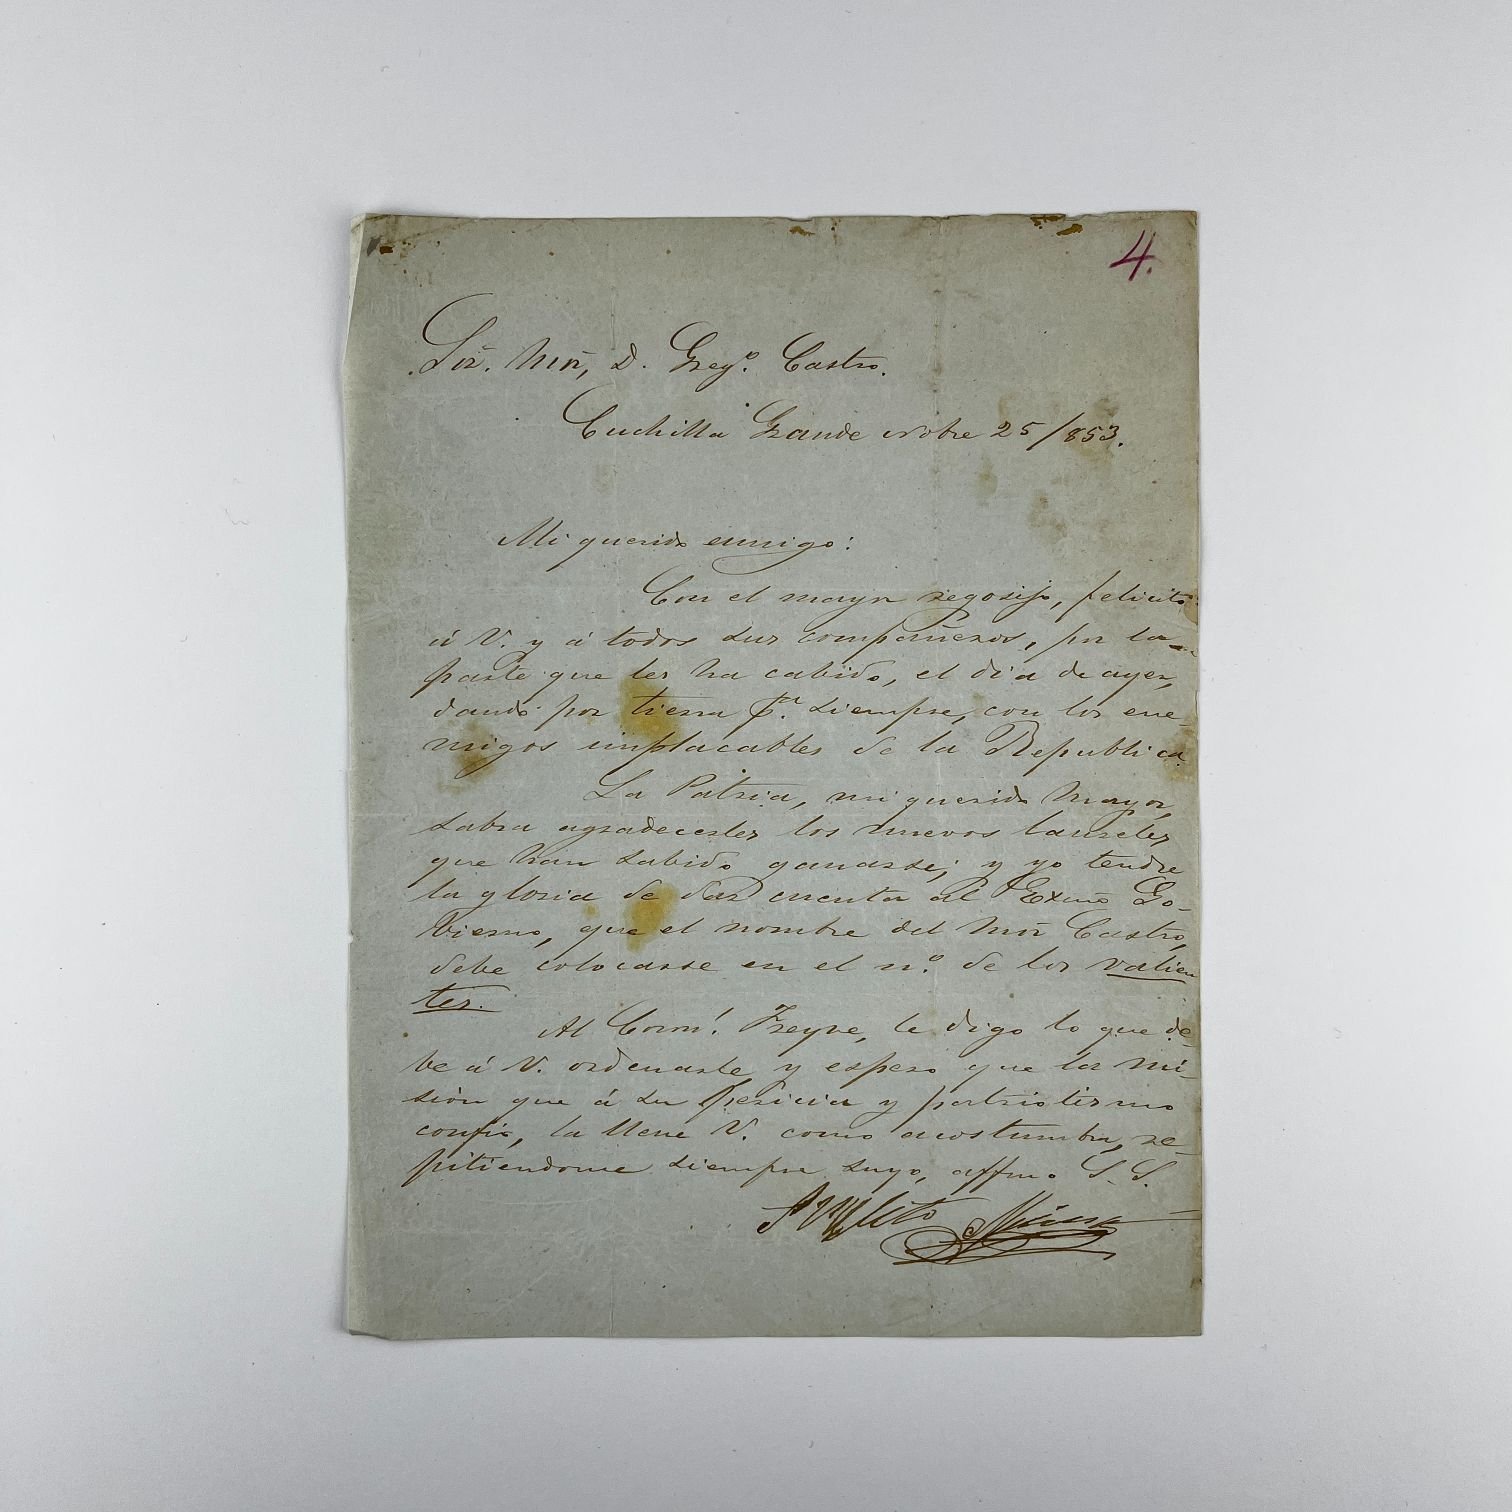 4.
Sor. Mor, D. Grego. Castro.
Cuchilla Grande Nobre 25/853.
Mi querido amigo:
Con el mayor regosijo, felicito
á V. y á todos sus compañeros, por la
parte que les ha cabido, el dia de ayer,
dando por tierra pa. siempre, con los ene-
migos implacables de la Republica.
La Patria, mi querido Mayor,
sabra agradecerles los nuevos laureles
que han sabido ganarse; y yo tendre
la gloria de dar cuenta al Exmo Go-
bierno, que el nombre del Mor Castro,
debe colocarse en el no. de los valien
tes.
Al Coronl. Freyre, le digo lo que de-
be á V. ordenarle y espero que la mi-
sion que á su pericia y patriotismo
confio, la llene V. como acostumbra, re-
pitiendome siempre suyo, affmo S. S.